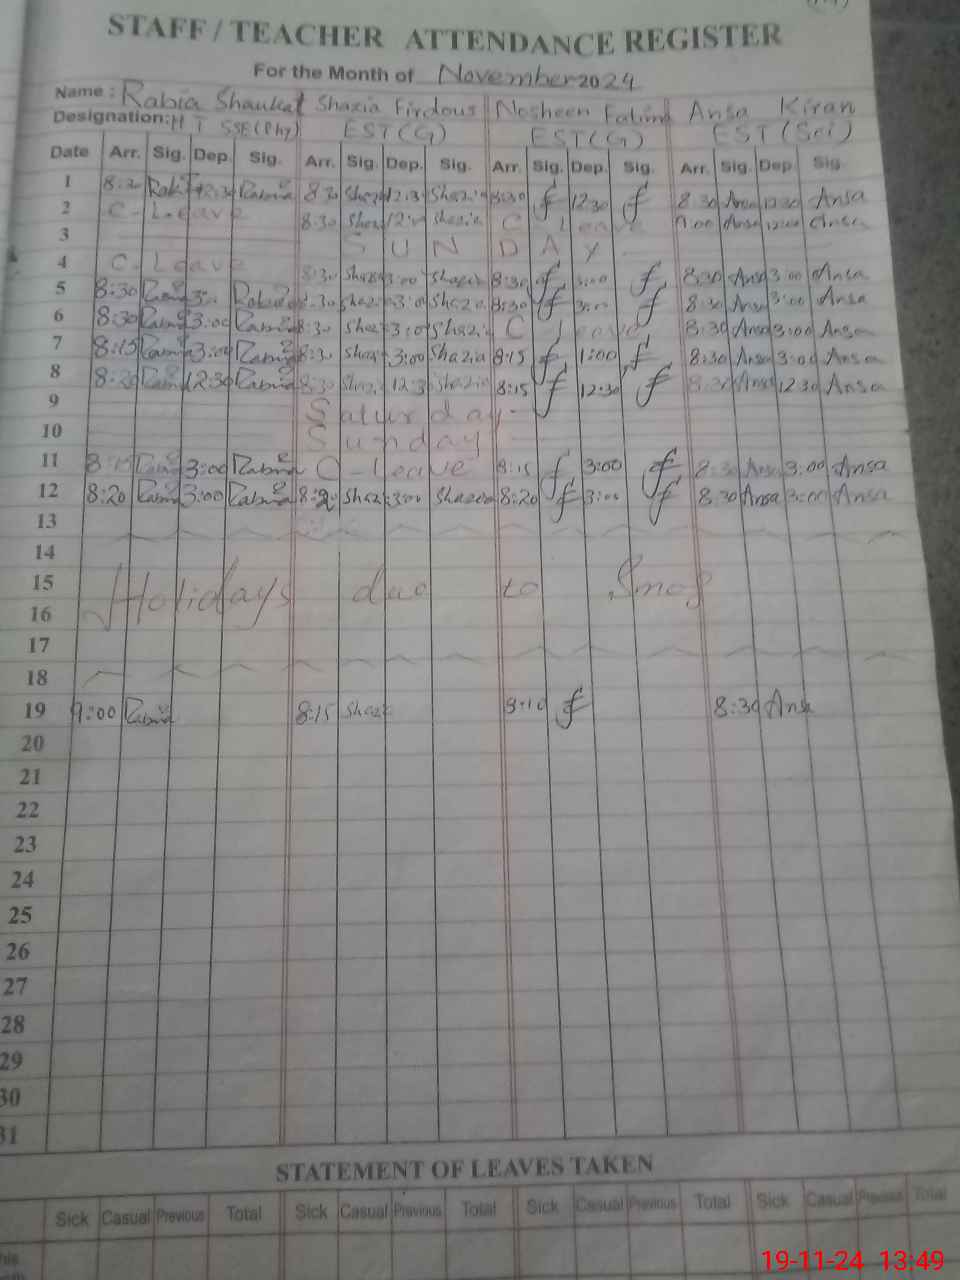 STAFF / TEACHER ATTENDANCE REGISTER
For the Month of November 2024
Name : Rabia Shaukat Shazia Firdous Nosheen Fatima Ansa Kiran
Designation: HT SSE(Phy) EST(G) EST(G) EST(Sci)
Date Arr. Sig. Dep. Sig. Arr. Sig. Dep. Sig. Arr. Sig. Dep. Sig. Arr. Sig. Dep. Sig.
1 8:30 12:30 Rabia 8:30 Shaz 12:30 Shazia 8:30 12:30 8:30 Ansa 12:30 Ansa
2 C-Leave 8:30 Shaz 12:00 Shazia C Leave 9:00 Ansa 12:00 Ansa
3 SUNDAY
4 C-Leave 8:30 Shaz 3:00 Shazia 8:30 3:00 8:30 Ansa 3:00 Ansa
5 8:30 Rabia 3:00 Rabia 8:30 Shaz 3:00 Shazia 8:30 3:00 8:30 Ansa 3:00 Ansa
6 8:30 Rabia 3:00 Rabia 8:30 Shaz 3:00 Shazia C-Leave 8:30 Ansa 3:00 Ansa
7 8:15 Rabia 3:00 Rabia 8:30 Shaz 3:00 Shazia 8:15 1:00 8:30 Ansa 3:00 Ansa
8 8:20 Rabia 12:30 Rabia 8:30 Shaz 12:30 Shazia 8:15 12:30 8:30 Ansa 12:30 Ansa
9 Saturday
10 Sunday
11 8:15 Rabia 3:00 Rabia C-Leave 8:15 3:00 8:30 Ansa 3:00 Ansa
12 8:20 Rabia 3:00 Rabia 8:20 Shaz 3:00 Shazia 8:20 3:00 8:30 Ansa 3:00 Ansa
13
14
15 Holidays due to Smog
16
17
18
19 9:00 Rabia 8:15 Shaz 8:10 8:30 Ansa
20
21
22
23
24
25
26
27
28
29
30
31
STATEMENT OF LEAVES TAKEN
Sick Casual Previous Total Sick Casual Previous Total Sick Casual Previous Total Sick Casual Previous Total
19-11-24 13:49